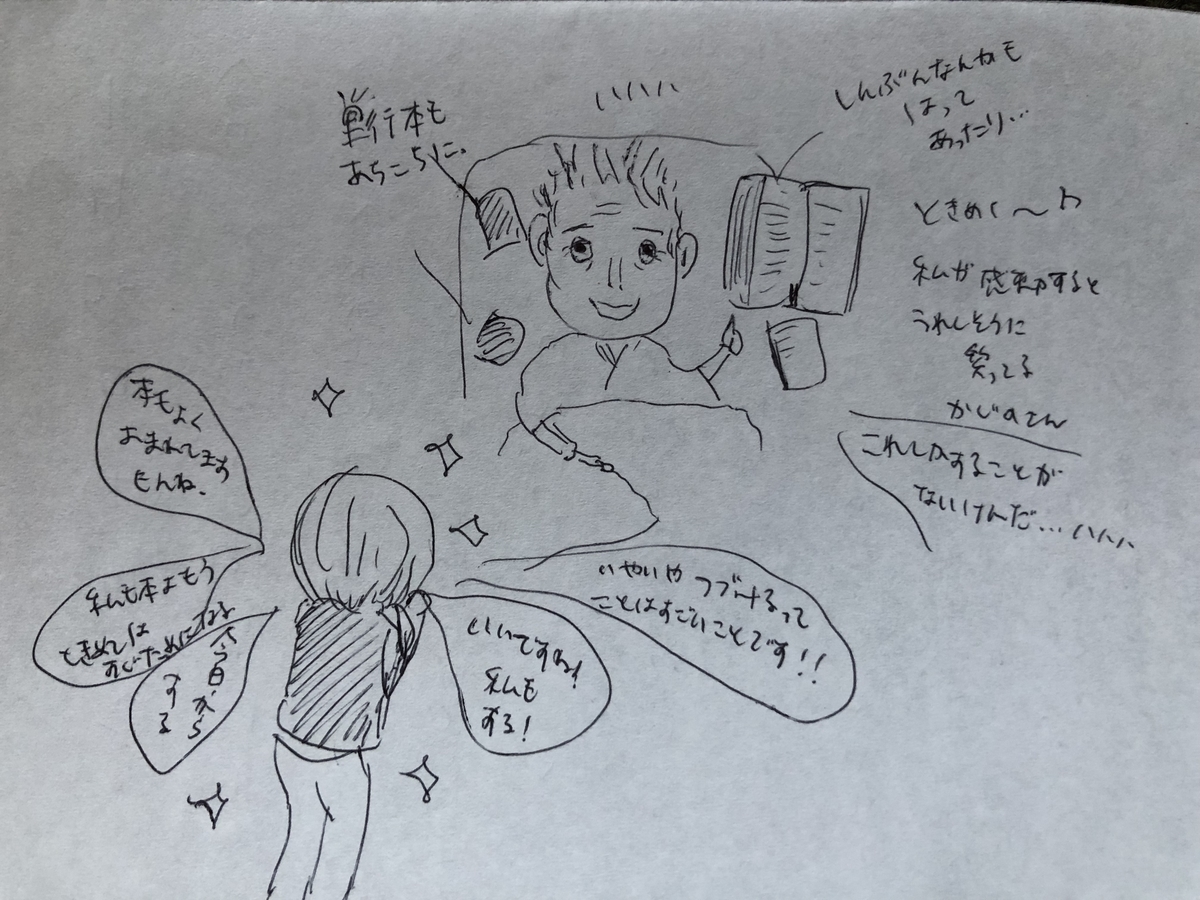 単行本も
あちこちに。
ハハハ
しんぶんなんかも
はって
あったり…
ときめく〜♪
私が感動すると
うれしそうに
笑ってる
かじのさん
これしかすることが
ないけんだ…ハハハ
本もよく
よまれてます
もんね。
私も本よもう
ときめいては
すぐためになる
今日から
する
いいですね!
私も
する!
いやいやつづけるって
ことはすごいことです!!